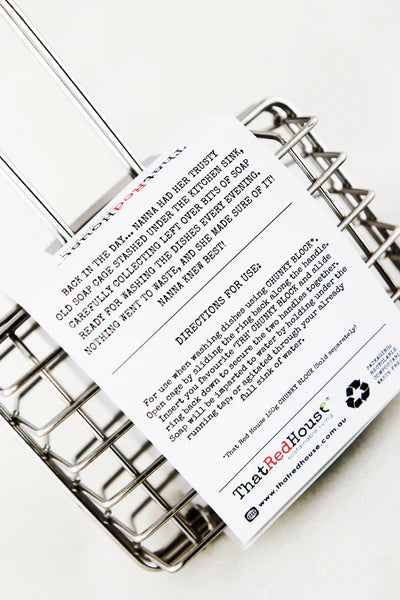 ThatRedHouse
BACK IN THE DAY... NANNA HAD HER TRUSTY
OLD SOAP CAGE STASHED UNDER THE KITCHEN SINK,
CAREFULLY COLLECTING LEFT OVER BITS OF SOAP
READY FOR WASHING THE DISHES EVERY EVENING.
NOTHING WENT TO WASTE, AND SHE MADE SURE OF IT!
NANNA KNEW BEST!
DIRECTIONS FOR USE.
For use when washing dishes using CHUNKY BLOCK*.
Open cage by sliding the ring back along the handle.
Insert you favourite 'TRH' CHUNKY BLOCK and slide
ring back down to secure the two handles together.
Soap will be imparted to water by holding under the
running tap, or agitated through your already
full sink of water.
*That Red House 150g CHUNKY BLOCK (Sold separately)
PACKAGING:
RECYCLABLE
ThatRedHouse
sustainable living
www.thatredhouse.com.au